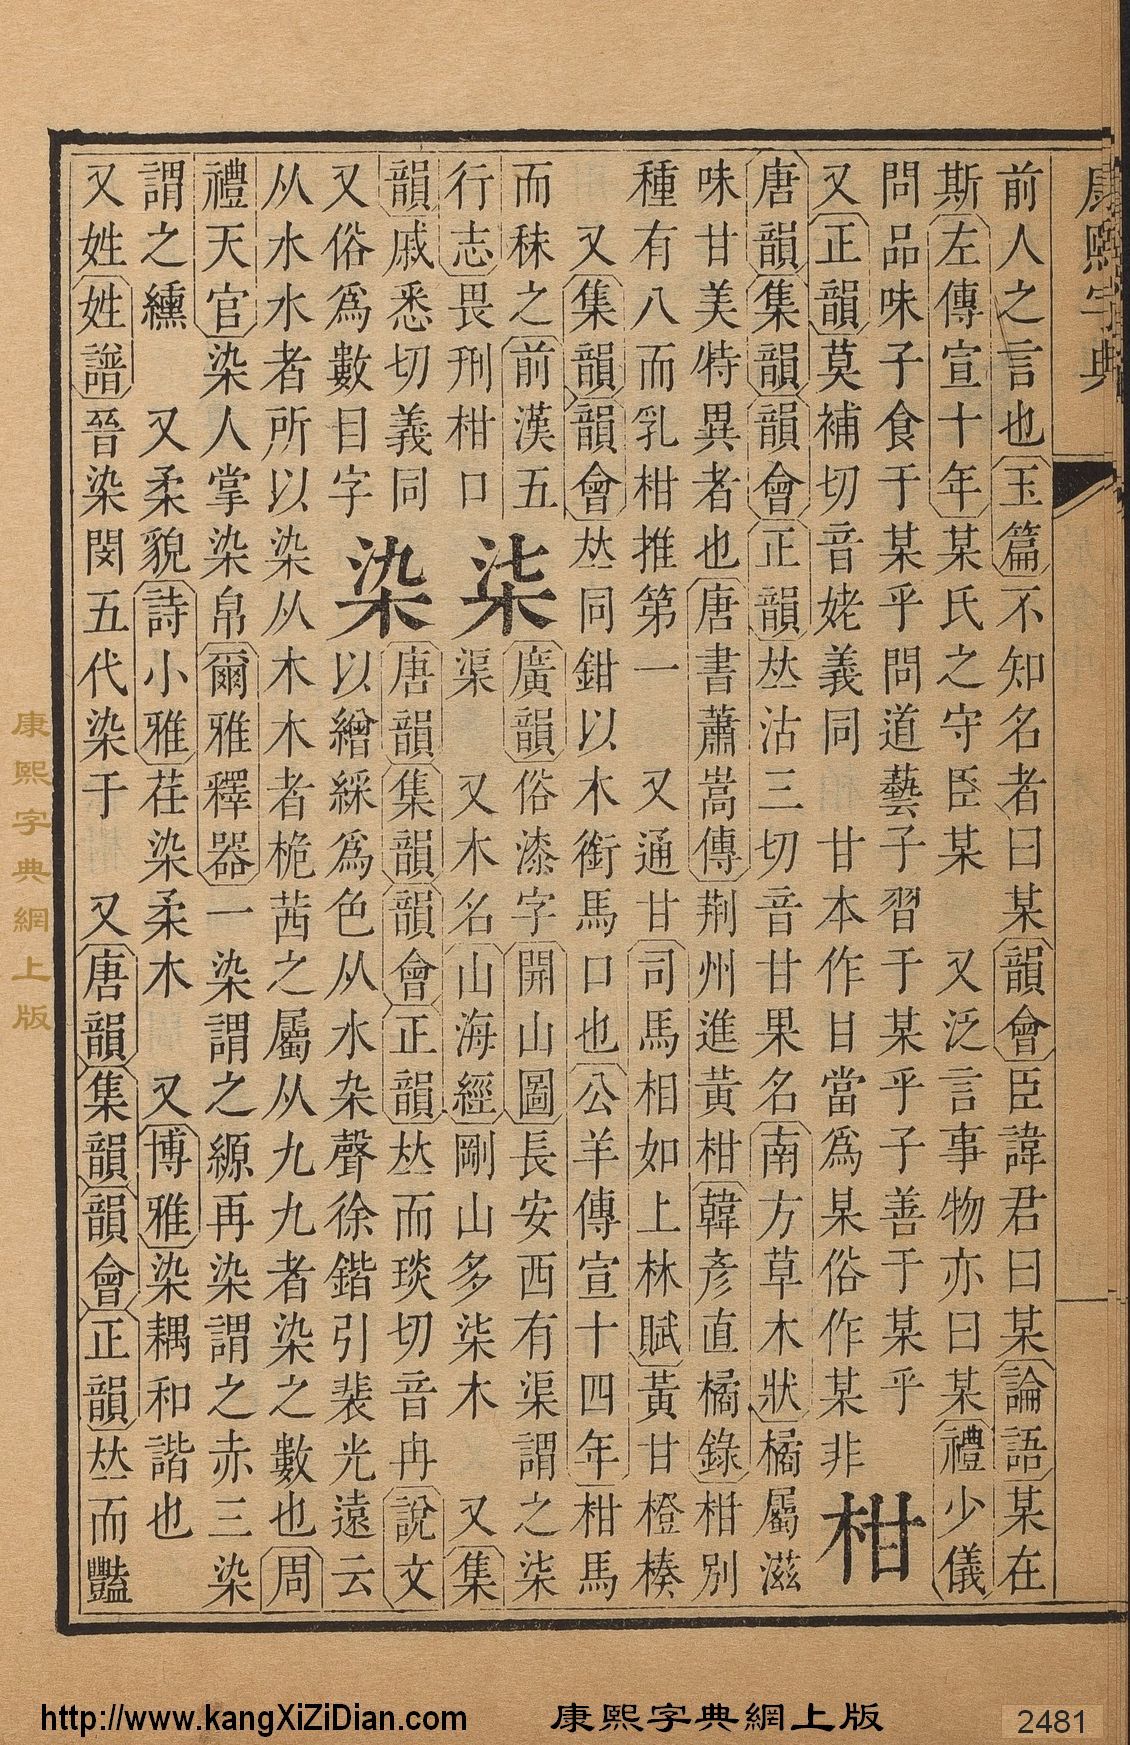 康熙字典
前人之言也玉篇不知名者曰某韻會臣諱君曰某論語某在
斯左傳宣十年某氏之守臣某 又泛言事物亦曰某禮少儀
問品味子食于某乎問道藝子習于某乎子善于某乎
又正韻莫補切音姥義同 甘本作甘當爲某俗作某非
柑
唐韻集韻韻會正韻𠀤沽三切音甘果名南方草木狀橘屬滋
味甘美特異者也唐書蕭嵩傳荆州進黃柑韓彥直橘錄柑別
種有八而乳柑推第一 又通甘司馬相如上林賦黃甘橙楱
又集韻韻會𠀤同鉗以木銜馬口也公羊傳宣十四年柑馬
而秣之前漢五
行志畏刑柑口
柒
廣韻俗漆字開山圖長安西有渠謂之柒
渠 又木名山海經剛山多柒木 又集
韻戚悉切義同
又俗爲數目字
染
唐韻集韻韻會正韻𠀤而琰切音冉說文
以繒綵爲色从水杂聲徐鍇引裴光遠云
从水水者所以染从木木者梔茜之屬从九九者染之數也周
禮天官染人掌染帛爾雅釋器一染謂之縓再染謂之赤三染
謂之纁 又柔貌詩小雅荏染柔木 又博雅染耦和諧也
又姓姓譜晉染閔五代染于 又唐韻集韻韻會正韻𠀤而豔
康熙字典網上版
http://www.kangXiZiDian.com 康熙字典網上版 2481